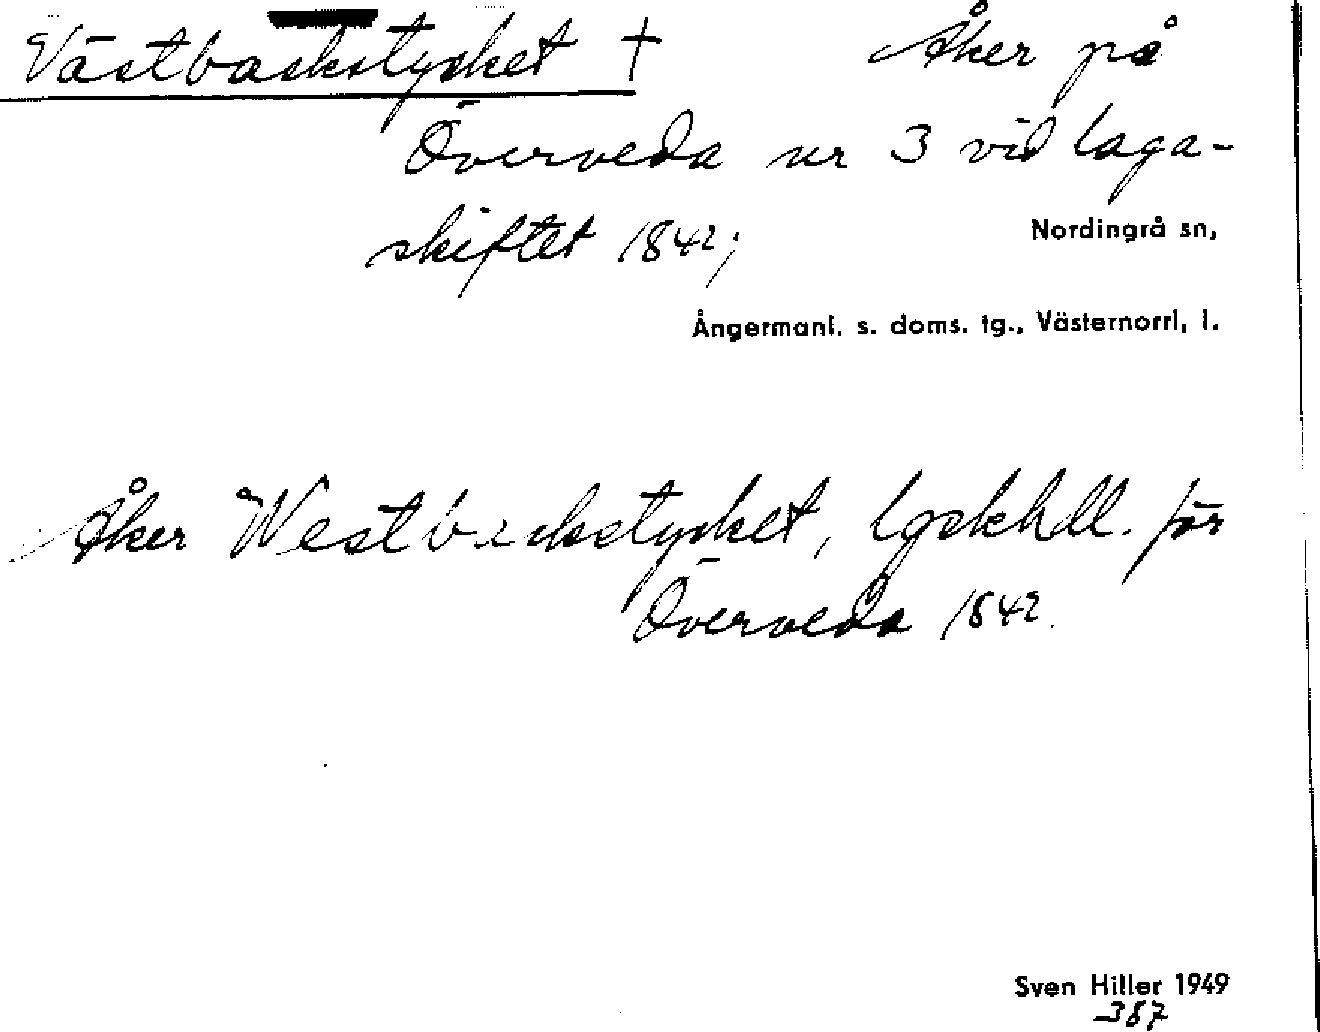 Västbackstycket † Åker på
Överveda nr 3 vid laga-
skiftet 1842;
Nordingrå sn,
Ångermanl. s. doms. tg., Västernorrl, l.
Åker Westbackstycket, Lgskhll. för
Överveda 1842.
Sven Hiller 1949
-387